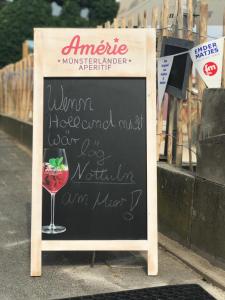 Amérie
• MÜNSTERLÄNDER •
APERITIF
Wenn
Holland nicht
wär
läg
Nottuln
am Meer!
EMDER
MATJES